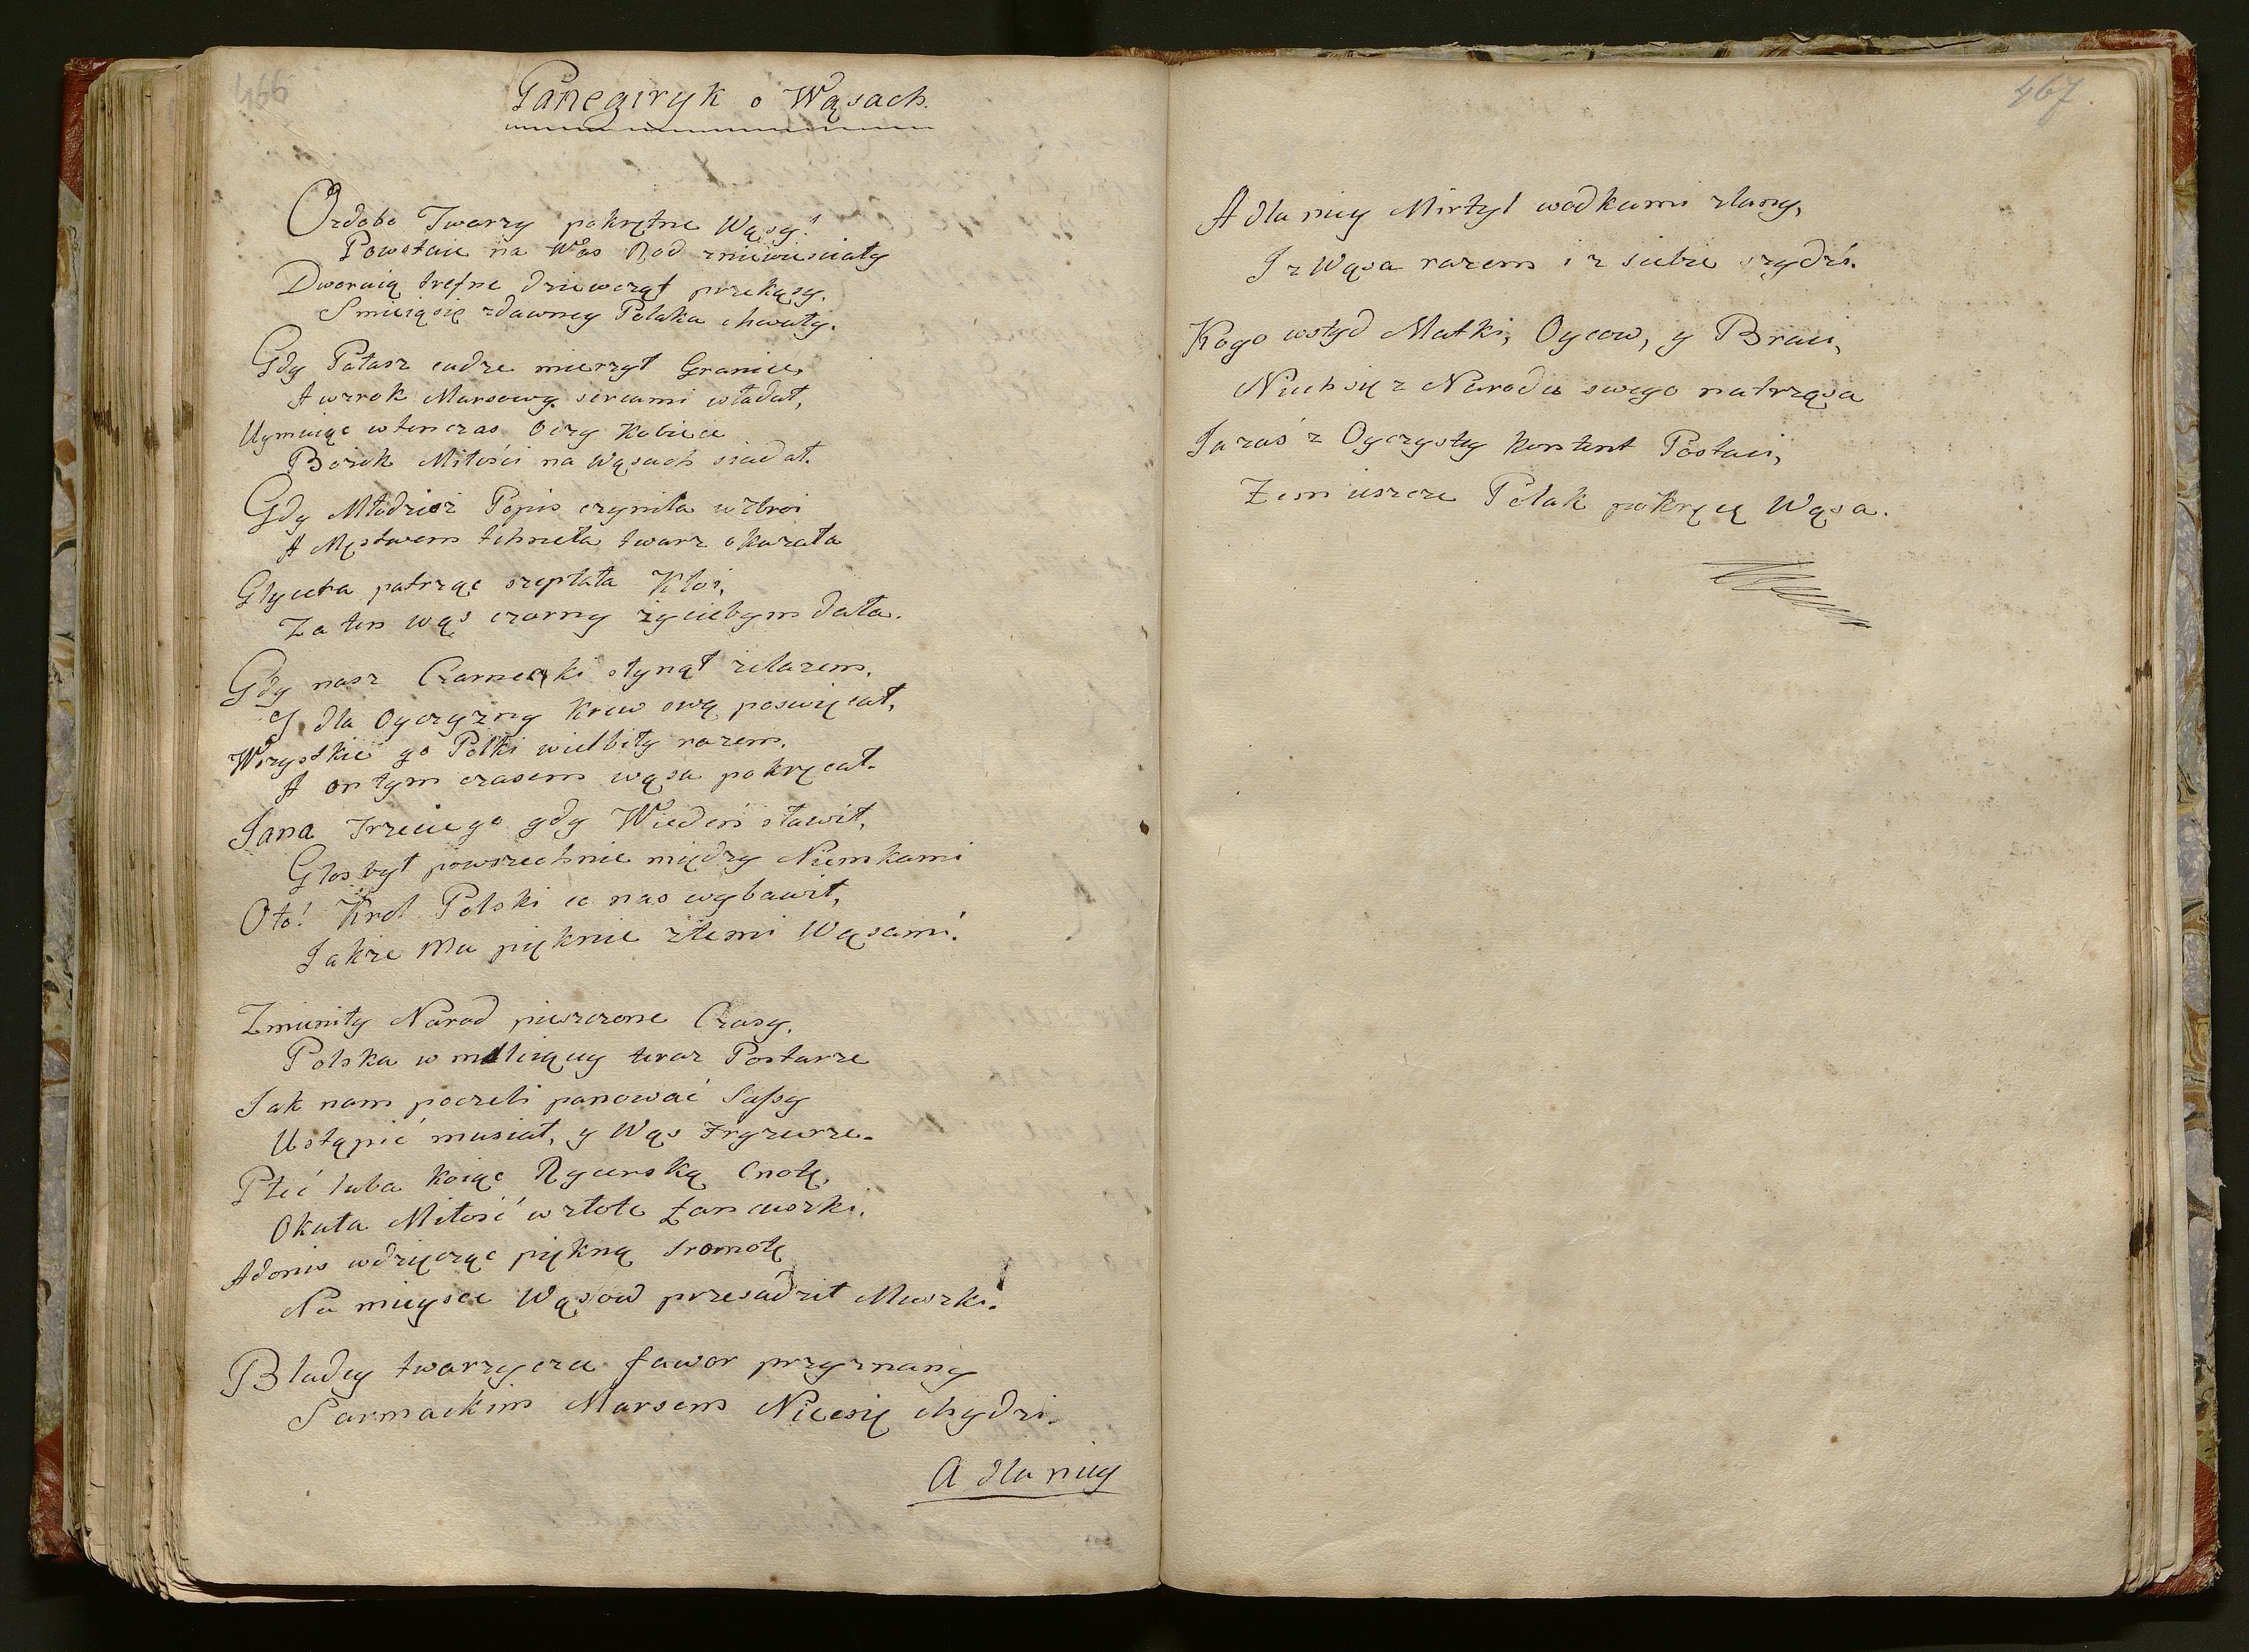 466
Panegiryk o Wąsach.
Ozdobo Twarzy pokrętne Wąsy!
Powstaie na Was Rod zniewieściały
Dworuią trefne dziewcząt przekąsy.
Smieią się zdawney Polaka chwały.
Gdy Pałasz cudze mierzył Granice
A wzrok Marsowy sercami władał,
Uymuiąc wtenczas Oczy Kobiece
Bożek Miłości na Wąsach siadał.
Gdy Młodzież Popis czyniła w zbroi
A Męstwem tchneła twarz okazała
Glycera patrząc szeptała Kloi,
Za ten wąs czarny życiebym dała.
Gdy nasz Czarnecki słynął żelazem,
Y dla Oyczyzny krew swą poswięcał,
Wszystkie go Polki wielbiły razem.
A on tym czasem wąsa pokręcał.
Jana Trzeciego gdy Wiedeń sławił,
Głos był powszechnie między Niemkami
Oto! Krol Polski co nas wybawił,
Jakże Mu pięknie ztemi Wąsami!
Zmieniły Narod pieszczone Czasy,
Polska w mdleiącey teraz Posturze
Jak nam poczeli panować Sassy
Ustąpić musiał, y Wąs Fryzurze.
Płeć luba koiąc Rycerską Cnotę,
Okuła Miłość w złote Łancuszki.
Adonis wdzięcząc piękną sromotę
Na mieysce Wąsow przesadził Muszki!
Bladey twarzy czci fawor przyznany
Sarmackim Marsem Nice się chydzi.
A dla niey
467.
A dla niey Mirtyl wodkami zlany,
I z Wąsa razem i z siebie szydzi.
Kogo wstyd Matki, Oycow, y Braci,
Niech się z Narodu swego natrząsa
Ja zaś z Oyczystey kontent Postaci,
Żem ieszcze Polak pokręcę Wąsa.